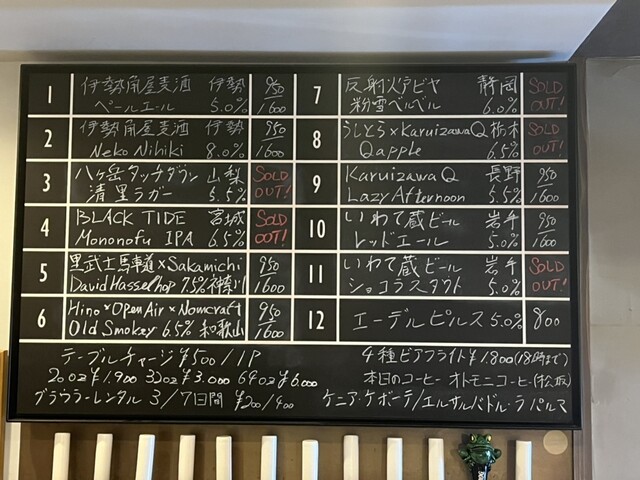 1 伊勢角屋麦酒 伊勢 950
ペールエール 5.0% 1600
2 伊勢角屋麦酒 伊勢 950
Neko Nihiki 8.0% 1600
3 八ヶ岳タッチダウン 山梨 SOLD
清里ラガー 5.5% OUT!
4 BLACK TIDE 宮城 SOLD
Mononofu IPA 6.5% OUT!
5 黒武士馬車道×Sakamichi 950
David Hasselhop 7.5% 神奈川 1600
6 Hino×OpenAir×Nomcraft 950
Old Smokey 6.5% 和歌山 1600
7 反射炉ビヤ 静岡 SOLD
粉雪ベルベル 6.0% OUT!
8 うしとら×KaruizawaQ 栃木 SOLD
Qapple 6.5% OUT!
9 Karuizawa Q 長野 950
Lazy Afternoon 5.5% 1600
10 いわて蔵ビール 岩手 950
レッドエール 5.0% 1600
11 いわて蔵ビール 岩手 SOLD
ショコラスタウト 5.0% OUT!
12 エーデルピルス 5.0% 800
テーブルチャージ ¥500/1P
20oz ¥1.900 32oz ¥3.000 64oz ¥6.000
グラウラーレンタル 3/7日間 ¥200/400
4種ビアフライト ¥1.800(18時まで)
本日のコーヒー オトモニコーヒー(松坂)
ケニア・ケボーテ/エルサルバドル・ラ パルマ